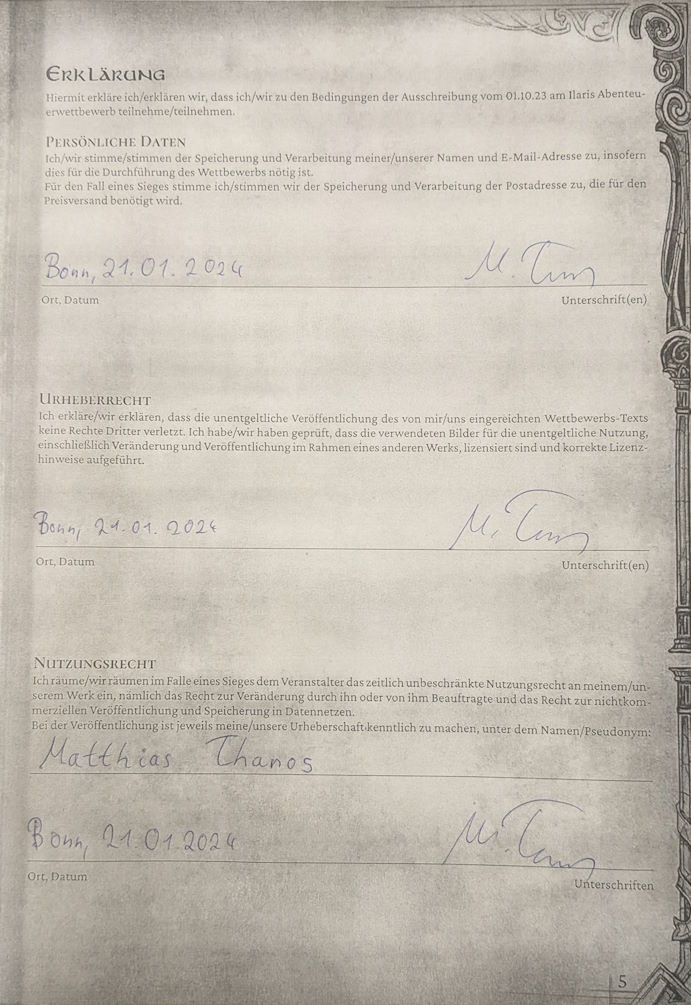 Erklärung
Hiermit erkläre ich/erklären wir, dass ich/wir zu den Bedingungen der Ausschreibung vom 01.10.23 am Ilaris Abenteu-
erwettbewerb teilnehme/teilnehmen.
Persönliche Daten
Ich/wir stimme/stimmen der Speicherung und Verarbeitung meiner/unserer Namen und E-Mail-Adresse zu, insofern
dies für die Durchführung des Wettbewerbs nötig ist.
Für den Fall eines Sieges stimme ich/stimmen wir der Speicherung und Verarbeitung der Postadresse zu, die für den
Preisversand benötigt wird.
Bonn, 21.01.2024 M. Thanos
Ort, Datum Unterschrift(en)
Urheberrecht
Ich erkläre/wir erklären, dass die unentgeltliche Veröffentlichung des von mir/uns eingereichten Wettbewerbs-Texts
keine Rechte Dritter verletzt. Ich habe/wir haben geprüft, dass die verwendeten Bilder für die unentgeltliche Nutzung,
einschließlich Veränderung und Veröffentlichung im Rahmen eines anderen Werks, lizensiert sind und korrekte Lizenz-
hinweise aufgeführt.
Bonn, 21.01.2024 M. Thanos
Ort, Datum Unterschrift(en)
Nutzungsrecht
Ich räume/wir räumen im Falle eines Sieges dem Veranstalter das zeitlich unbeschränkte Nutzungsrecht an meinem/un-
serem Werk ein, nämlich das Recht zur Veränderung durch ihn oder von ihm Beauftragte und das Recht zur nichtkom-
merziellen Veröffentlichung und Speicherung in Datennetzen.
Bei der Veröffentlichung ist jeweils meine/unsere Urheberschaft kenntlich zu machen, unter dem Namen/Pseudonym:
Matthias Thanos
Bonn, 21.01.2024 M. Thanos
Ort, Datum Unterschriften
5